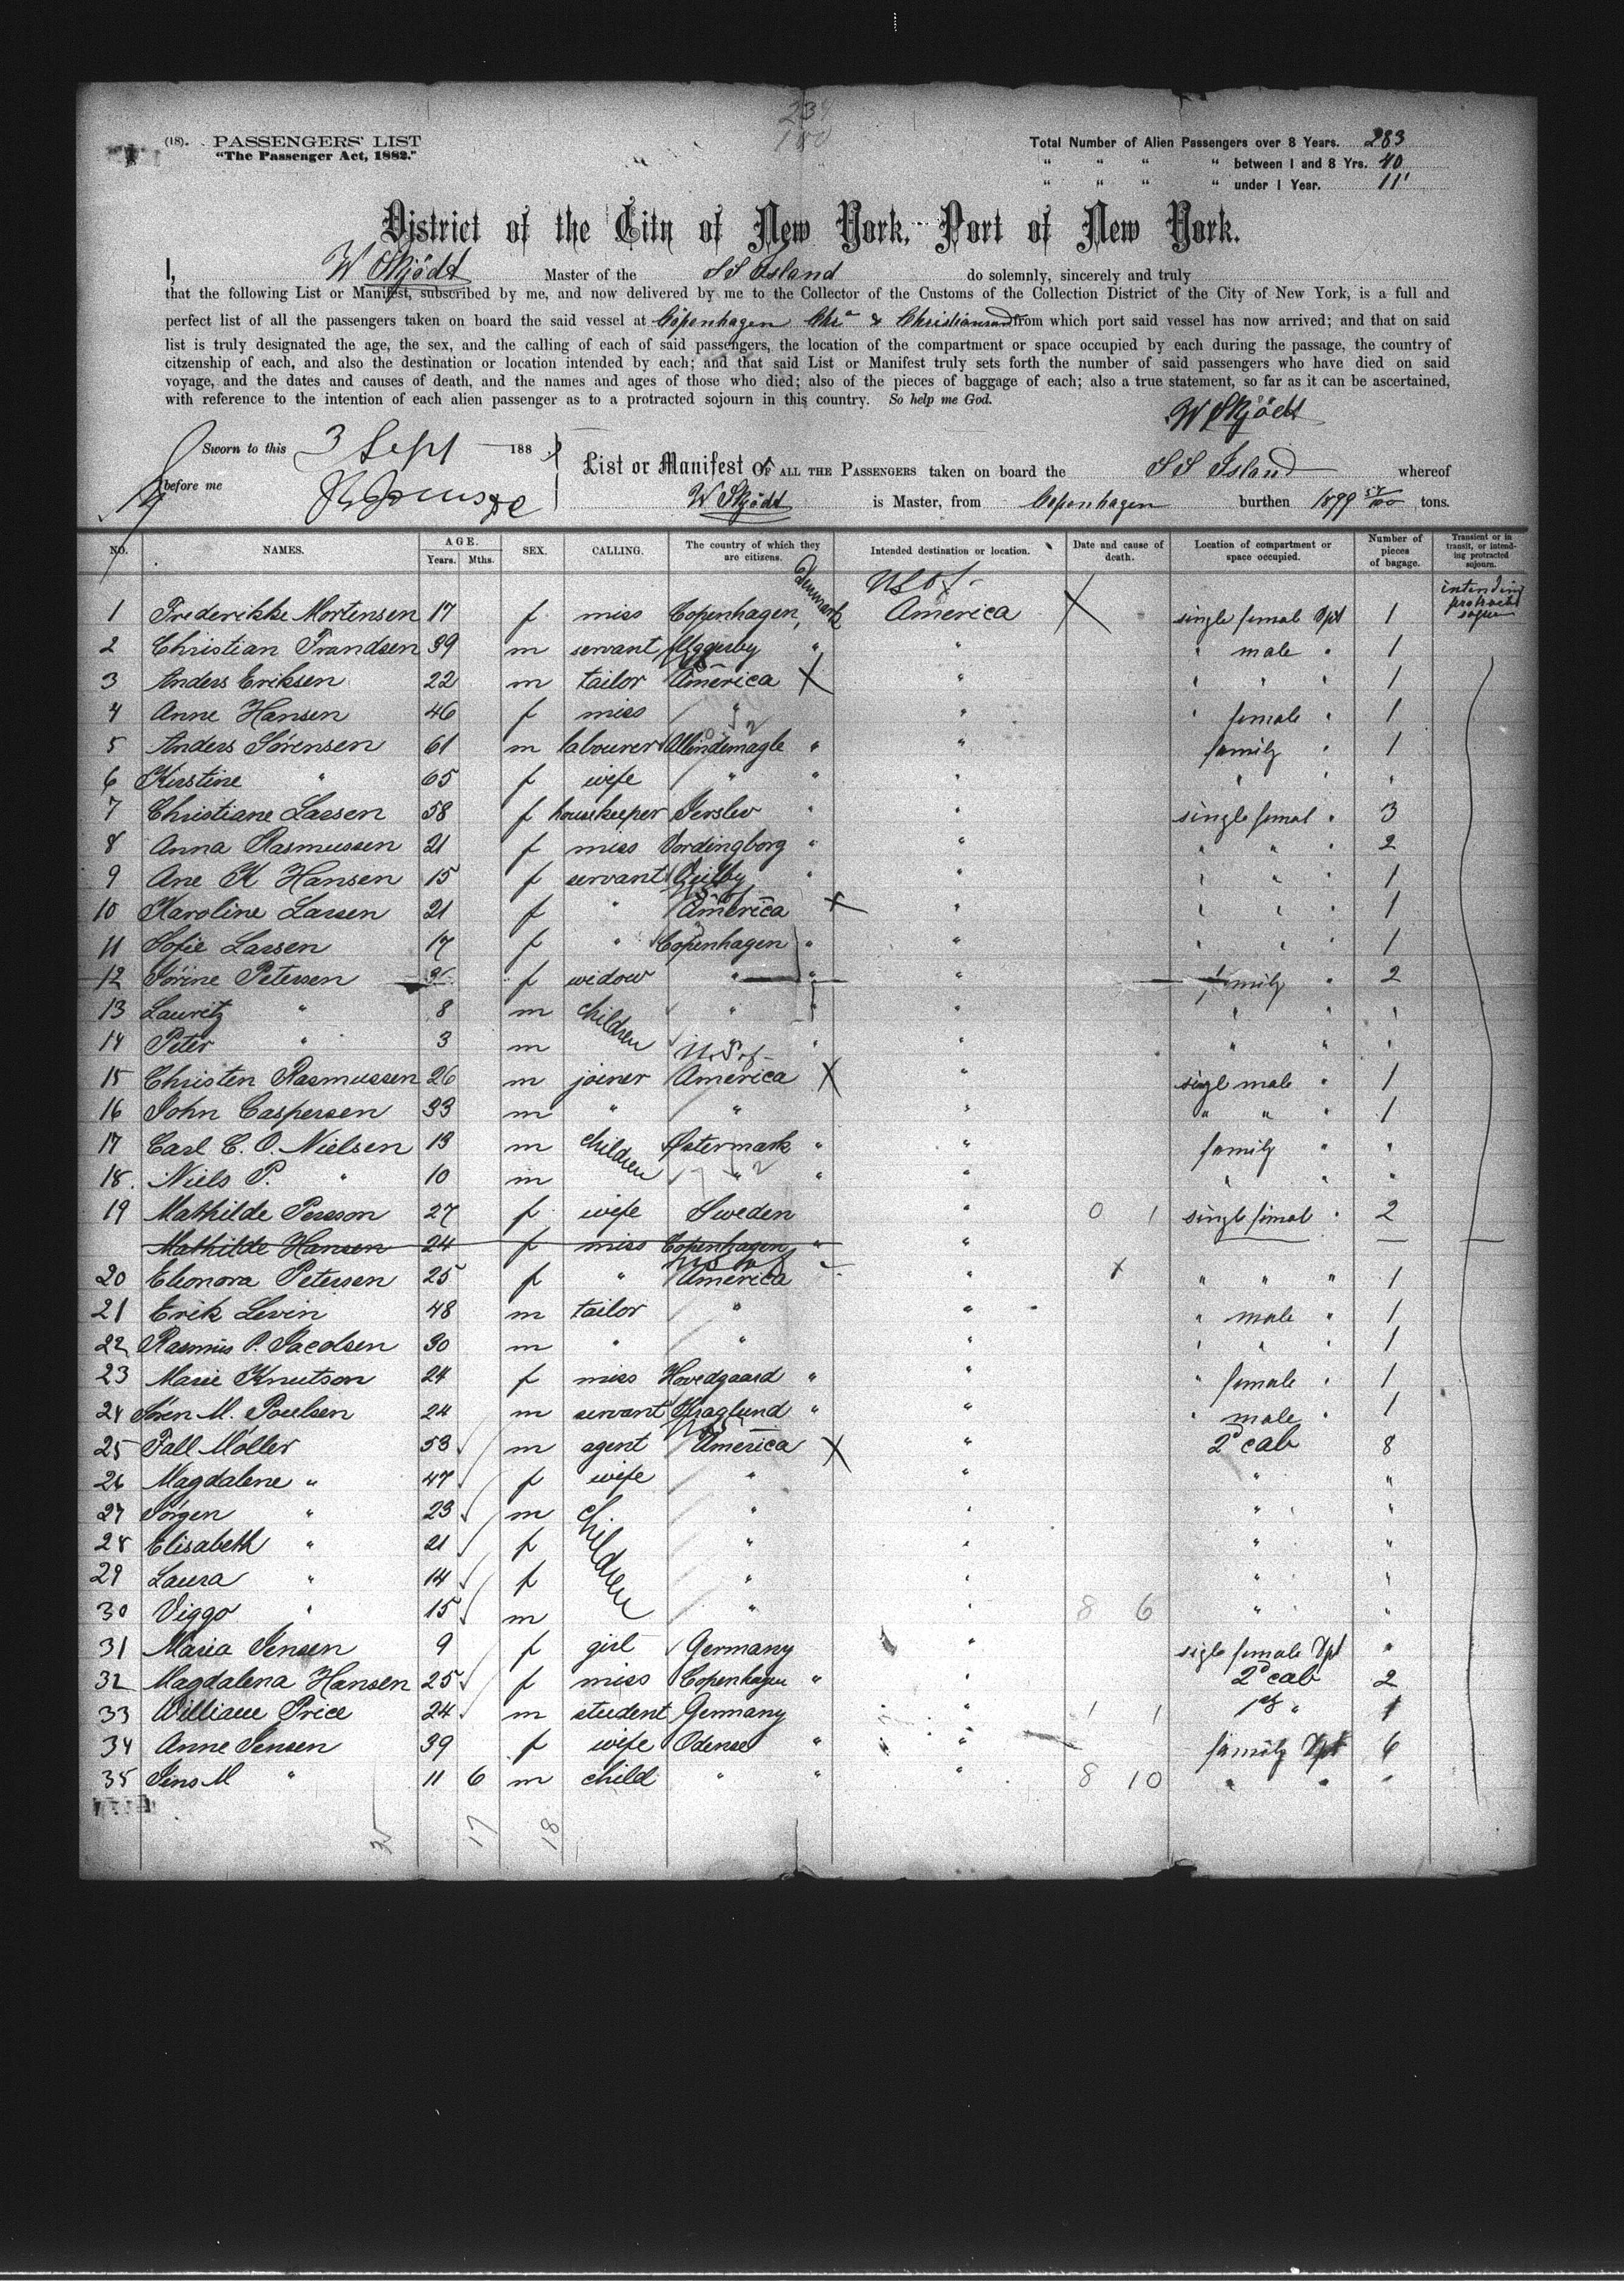 234
180
(18). PASSENGERS' LIST
"The Passenger Act, 1882."
Total Number of Alien Passengers over 8 Years. 283
" " " " between 1 and 8 Yrs. 40
" " " " under 1 Year. 11
District of the City of New York, Port of New York.
I, W Skjödt Master of the SS Island do solemnly, sincerely and truly
that the following List or Manifest, subscribed by me, and now delivered by me to the Collector of the Customs of the Collection District of the City of New York, is a full and
perfect list of all the passengers taken on board the said vessel at Copenhagen Chra & Christiansand from which port said vessel has now arrived; and that on said
list is truly designated the age, the sex, and the calling of each of said passengers, the location of the compartment or space occupied by each during the passage, the country of
citzenship of each, and also the destination or location intended by each; and that said List or Manifest truly sets forth the number of said passengers who have died on said
voyage, and the dates and causes of death, and the names and ages of those who died; also of the pieces of baggage of each; also a true statement, so far as it can be ascertained,
with reference to the intention of each alien passenger as to a protracted sojourn in this country. So help me God.
W Skjödt
Sworn to this 3 Sept 188
before me
List or Manifest OF ALL THE PASSENGERS taken on board the SS Island whereof
W Skjödt is Master, from Copenhagen burthen 1899 57/100 tons.
NO. NAMES. AGE. Years. Mths. SEX. CALLING. The country of which they are citizens. Intended destination or location. Date and cause of death. Location of compartment or space occupied. Number of pieces of bagage. Transient or in transit, or intending protracted sojourn.
1 Frederikke Mortensen 17 f miss Copenhagen, Denmark U S of America single femal Dpt 1 intending protract
2 Christian Frandsen 39 m servant Uggerby " " " male " 1
3 Anders Eriksen 22 m tailor America " " " " 1
4 Anne Hansen 46 f miss " " " female " 1
5 Anders Sørensen 61 m labourer Allindemagle " " family " 1
6 Kirstine " 65 f wife " " " " " "
7 Christiane Larsen 58 f housekeeper Jerslev " " single femal " 3
8 Anna Rasmussen 21 f miss Vordingborg " " " " " 2
9 Ane K Hansen 15 f servant " " " " " 1
10 Karoline Larsen 21 f " America " " " " 1
11 Sofie Larsen 17 f " Copenhagen " " " " " 1
12 Sørine Petersen f widow " " " family " 2
13 Lauritz " 8 m children " " " " " "
14 Peter " 3 m " " " " "
15 Christen Rasmussen 26 m joiner U.S. of America " singl male " 1
16 John Caspersen 33 m " " " " " " 1
17 Carl C. O. Nielsen 13 m children Østermark " " family " "
18. Niels P. " 10 m " " " " " "
19 Mathilde Persson 27 f wife Sweden " 0 1 single femal " 2
Mathilde Hansen 24 f miss Copenhagen " "
20 Eleonora Petersen 25 f " U S of America " " " " 1
21 Erik Levin 48 m tailor " " " male " 1
22 Rasmus P. Jacobsen 30 m " " " " " " 1
23 Marie Knutson 24 f miss Hovedgaard " " " female " 1
24 Søren M. Poulsen 24 m servant Kraglund " " " male " 1
25 Fall Møller 53 m agent America " 2d cab 8
26 Magdalene " 47 f wife " " " "
27 Jörgen " 23 m children " " " "
28 Elisabeth " 21 f " " " "
29 Laura " 14 f " " " "
30 Viggo " 15 m " " 8 6 " "
31 Maria Jensen 9 f girl Germany " sigle female Dpt "
32 Magdalena Hansen 25 f miss Copenhagen " " 2d cab 2
33 William Price 24 m student Germany " 1 1 1st " 1
34 Anne Jensen 39 f wife Odense " " family Dpt 6
35 Jens M " 11 6 m child " " " 8 10 " " "
35 17 18